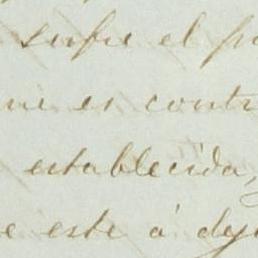 sufre el
es contr
establecida,
e este á dej